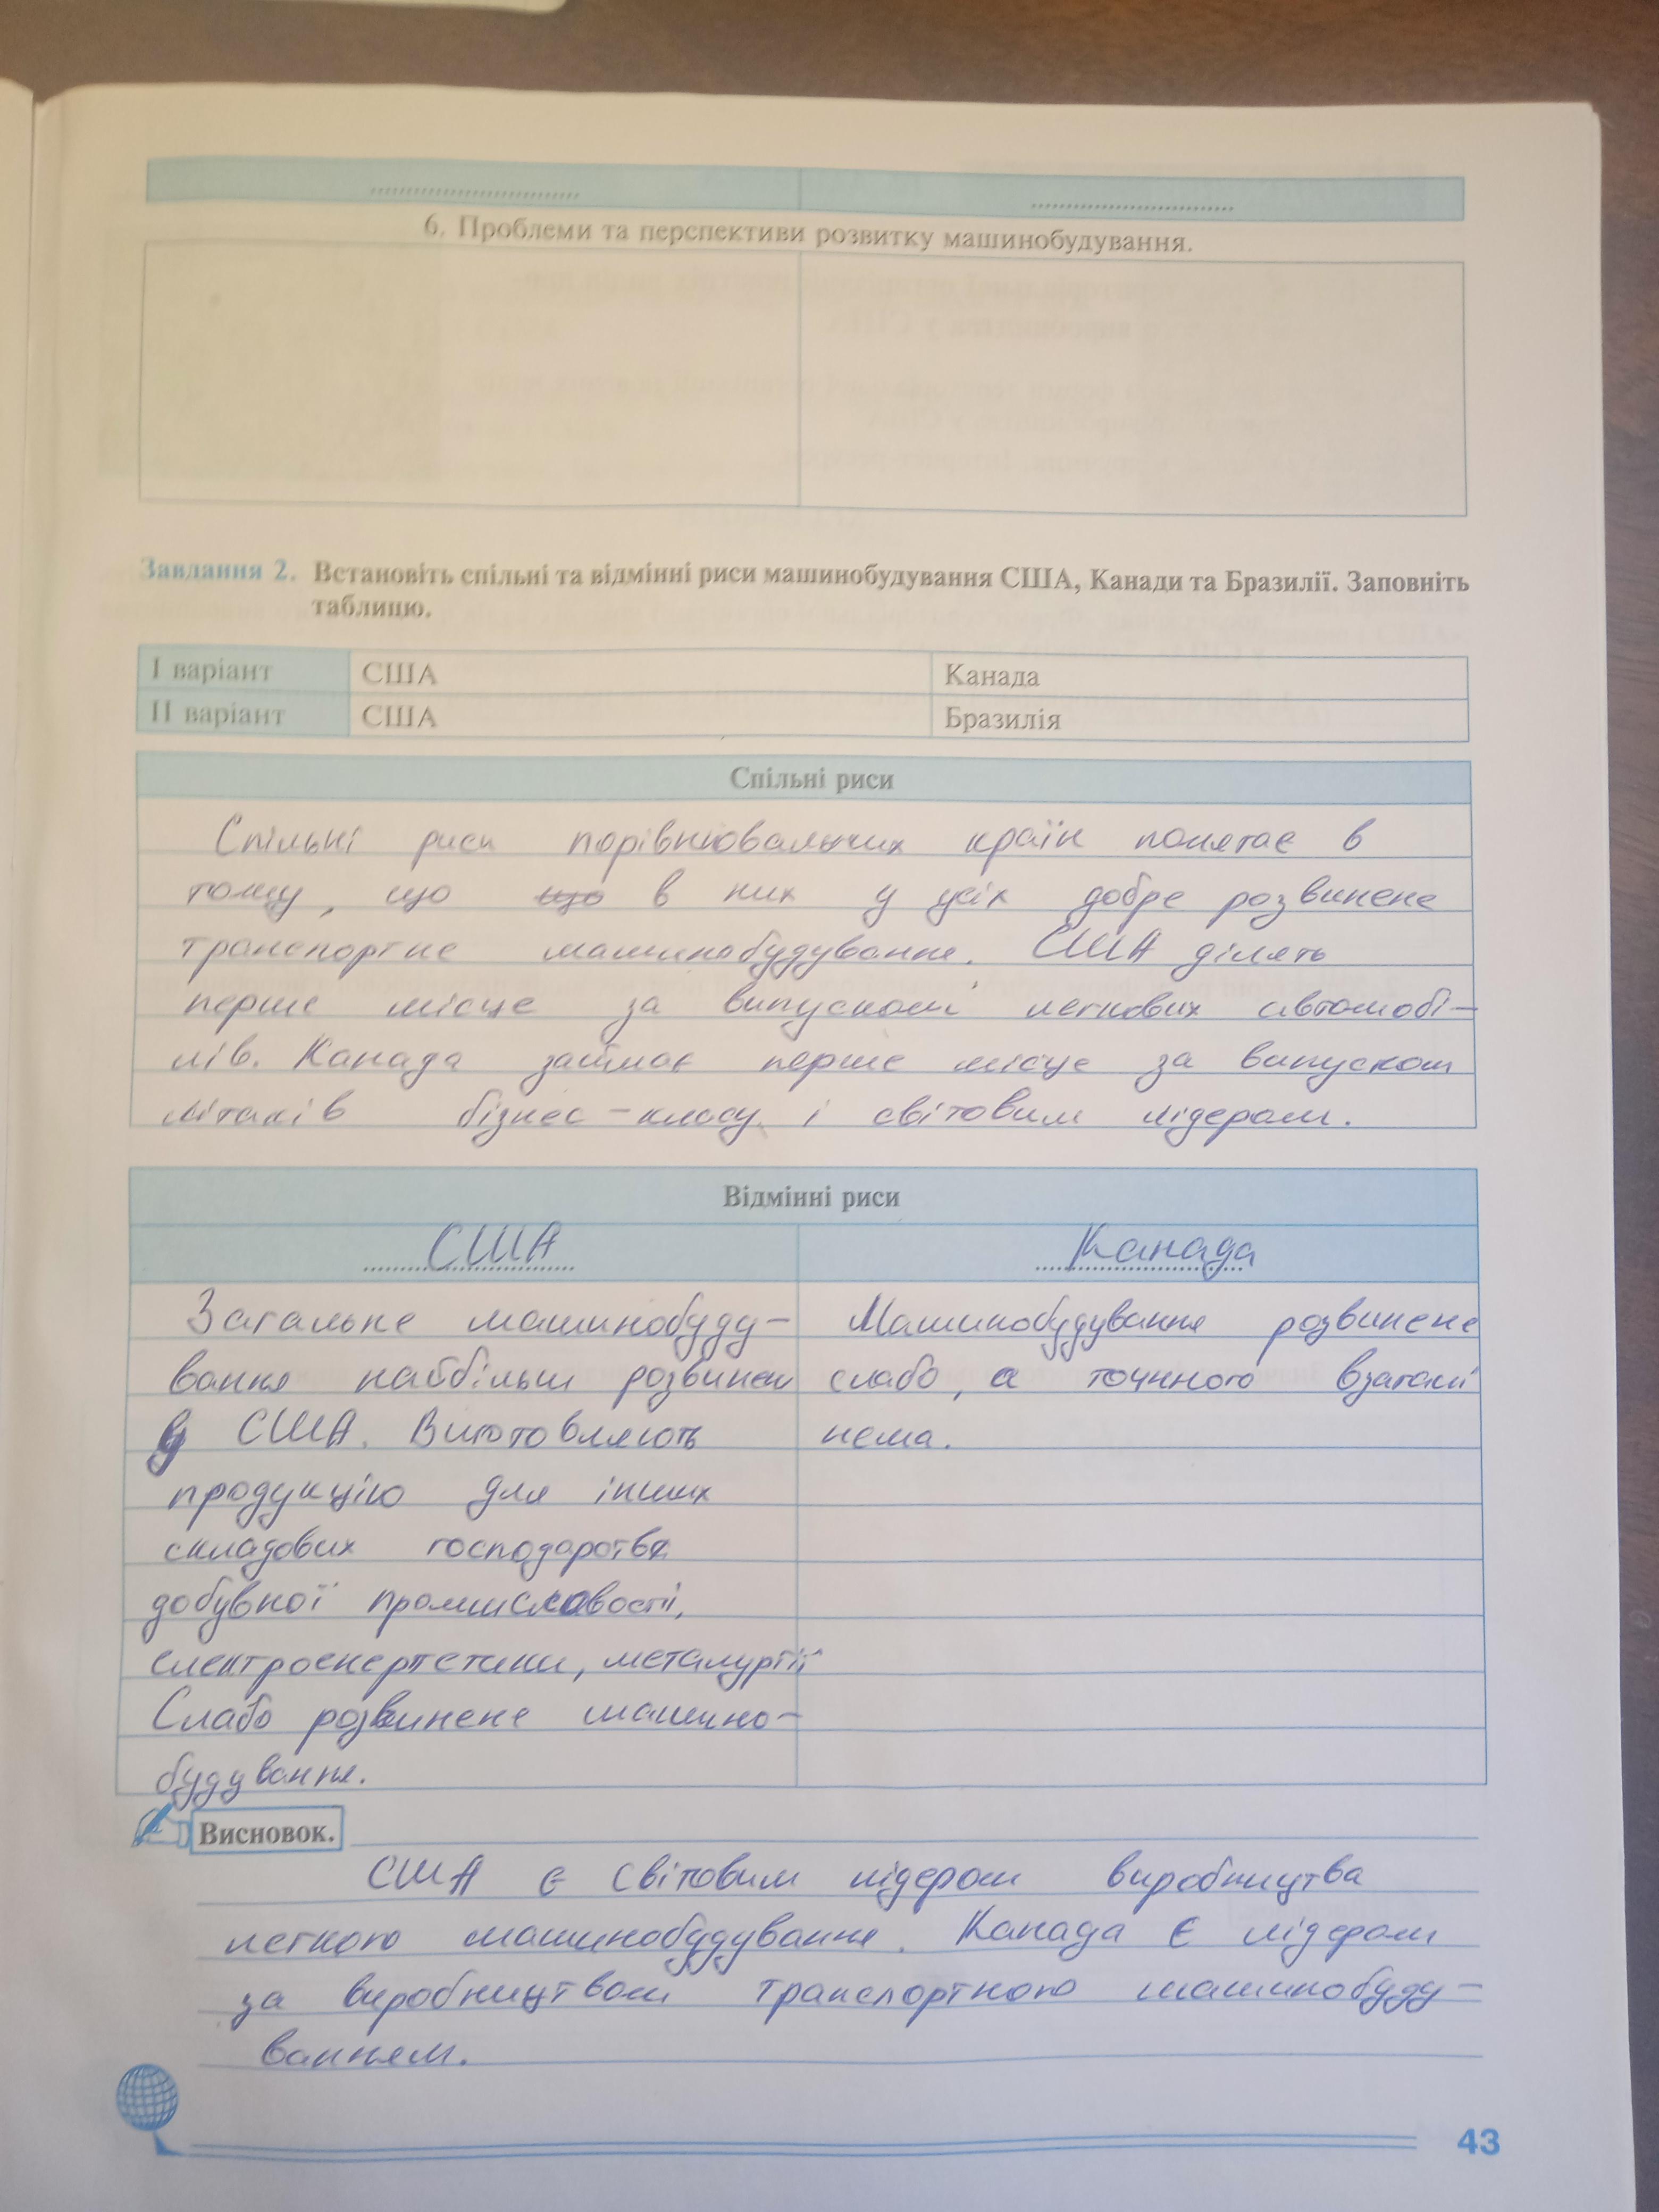 6. Проблеми та перспективи розвитку машинобудування.
Завдання 2. Встановіть спільні та відмінні риси машинобудування США, Канади та Бразилії. Заповніть
таблицю.
І варіант США Канада
ІІ варіант США Бразилія
Спільні риси
Спільні риси порівнювальних країн полягає в
тому, що що в них у усіх добре розвинене
транспортне машинобудування. США ділять
перше місце за випуском легкових автомобі-
лів. Канада займає перше місце за випуском
літаків бізнес-класу і світовим лідером.
Відмінні риси
США Канада
Загальне машинобуду- Машинобудування розвинене
вання найбільш розвинен слабо, а точного взагалі
у США. Виготовляють нема.
продукцію для інших
складових господарства
добувної промисловості,
електроенергетики, металургії
Слабо розвинене машино-
будування.
Висновок.
США є світовим лідером виробництва
легкого машинобудування. Канада є лідером
за виробництвом транспортного машинобуду-
ванням.
43